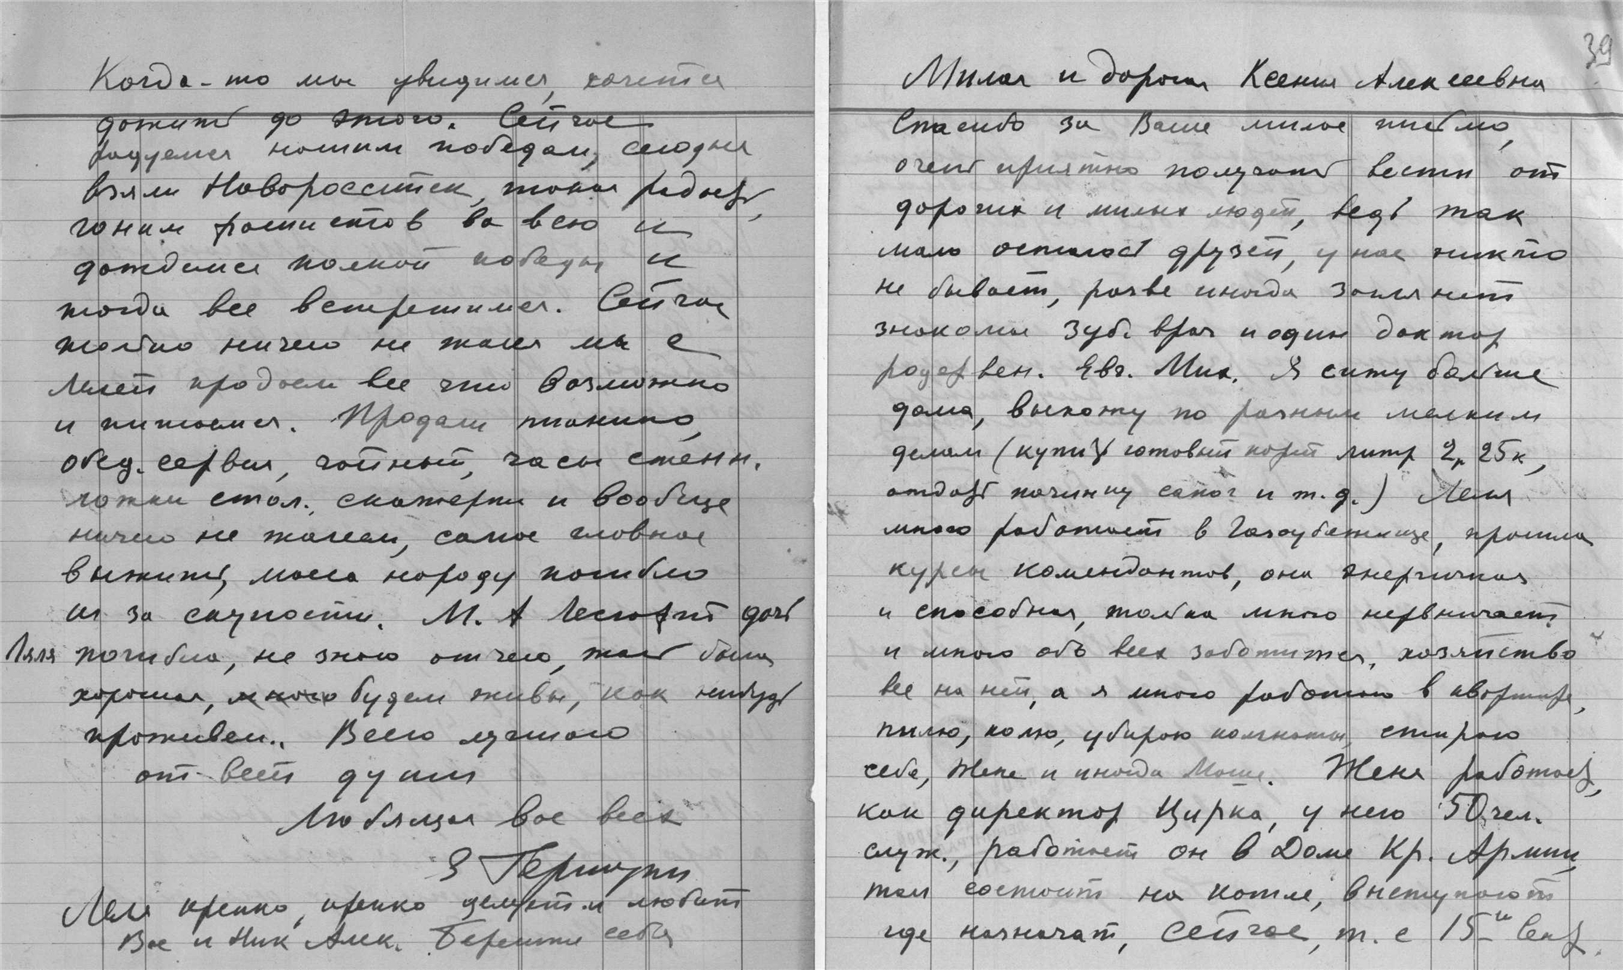 Когда-то мы увидимся, хочется
дожить до этого. Сейчас
радуемся нашим победам, сегодня
взяли Новороссийск, такая радость,
гоним фашистов во всю и
дождемся полной победы и
тогда все встретимся. Сейчас
только ничего не жалея мы с
Лелей продаем все что возможно
и питаемся. Продали пианино,
обед. сервиз, чайный, часы стенн.
ложки стол., скатерти и вообще
ничего не жалеем, самое главное
выжить, масса народу погибло
из за скупости. М. А дочь
Ляля погибла, не знаю отчего, жаль была
хорошая, будем живы, как нибудь
проживем.. Всего лучшего
от всей души
Любящая вас всех
З Гершуни
Леля крепко, крепко целует и любит
Вас и Ник Алек. Берегите себя
39
Милая и дорогая Ксения Алексеевна
Спасибо за Ваше милое письмо,
очень приятно получать вести от
дорогих и милых людей, ведь так
мало осталось друзей, у нас никто
не бывает, разве иногда заглянет
знакомая зуб. врач и один доктор
родствен. Евг. Мих. Я сижу больше
дома, выхожу по разным мелким
делам (купить литр 2р 25к,
отдать починку сапог и т.д.) Леля
много работает в Газоубежище, прошла
курсы комендантов, она энергичная
и способная, только много нервничает
и много обо всех заботится, хозяйство
все на ней, а я много работаю в квартире,
пилю, колю, убираю комнаты, стираю
себе, Жене и иногда Маше. Женя работает,
как директор Цирка, у него 50 чел.
служ., работает он в Доме Кр. Армии,
там состоит на котле, выступают
где назначат, сейчас, т. с 15 и Сент.